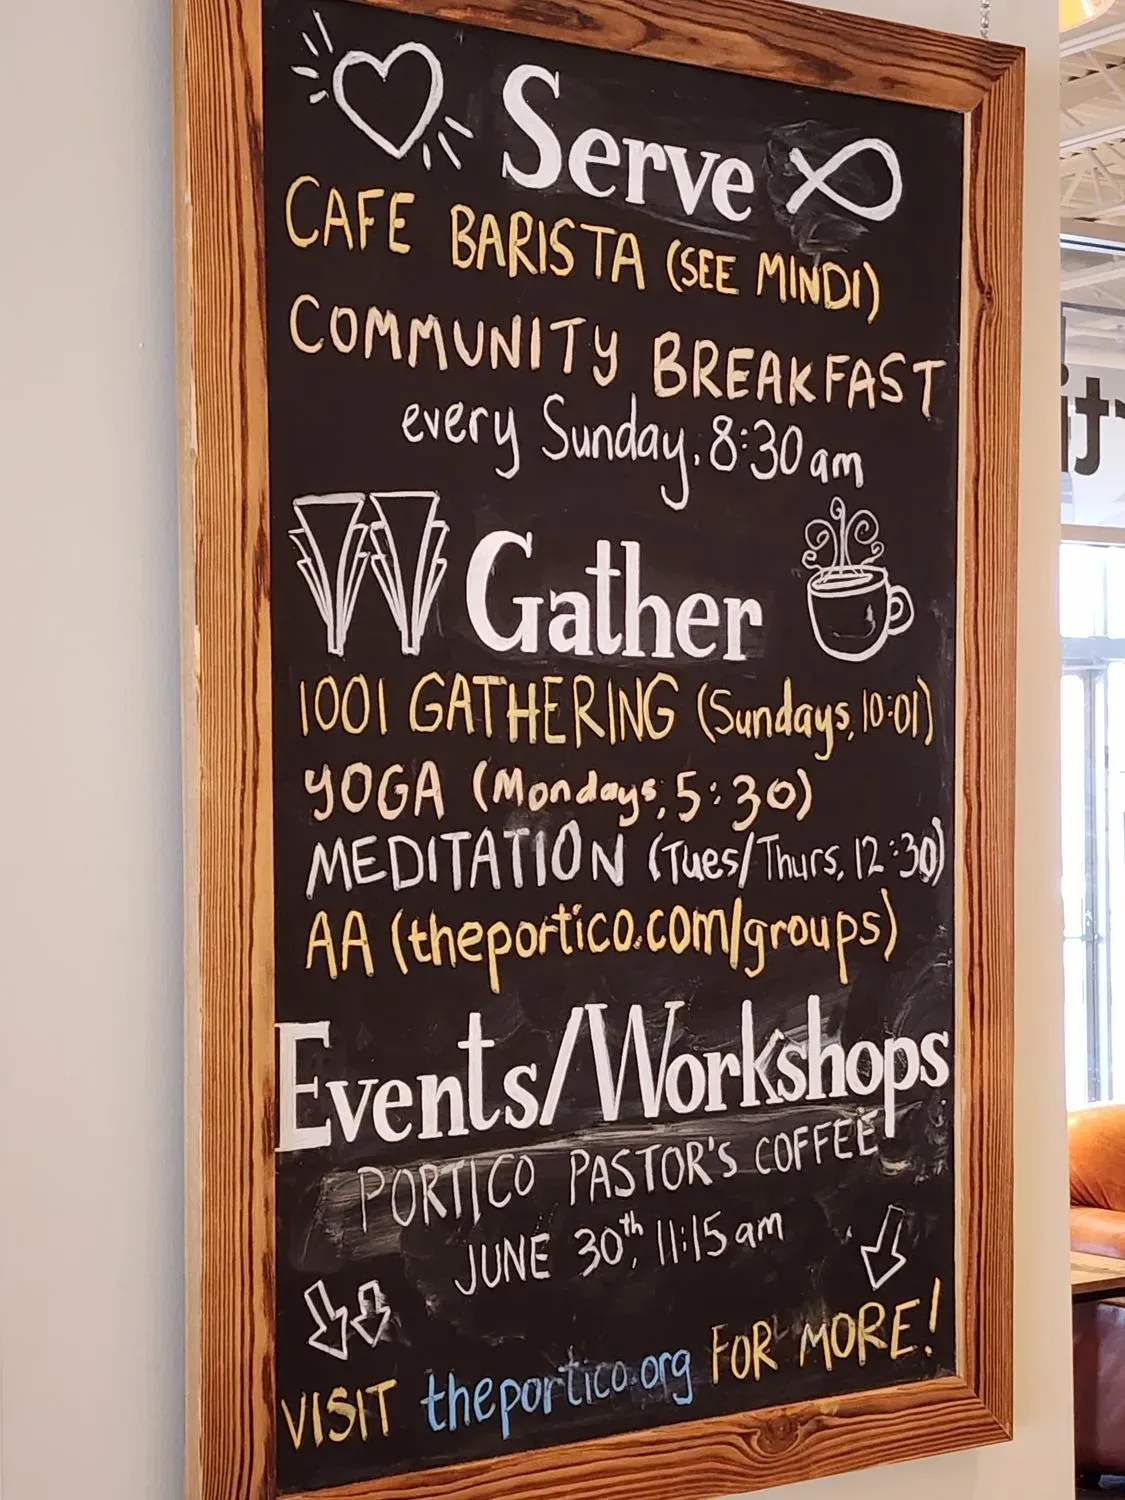 Serve
CAFE BARISTA (SEE MINDI)
COMMUNITY BREAKFAST
every Sunday, 8:30 am
Gather
1001 GATHERING (Sundays, 10:01)
YOGA (Mondays, 5:30)
MEDITATION (Tues/Thurs, 12:30)
AA (theportico.com/groups)
Events/Workshops
PORTICO PASTOR'S COFFEE
JUNE 30th, 11:15 am
VISIT theportico.org FOR MORE!